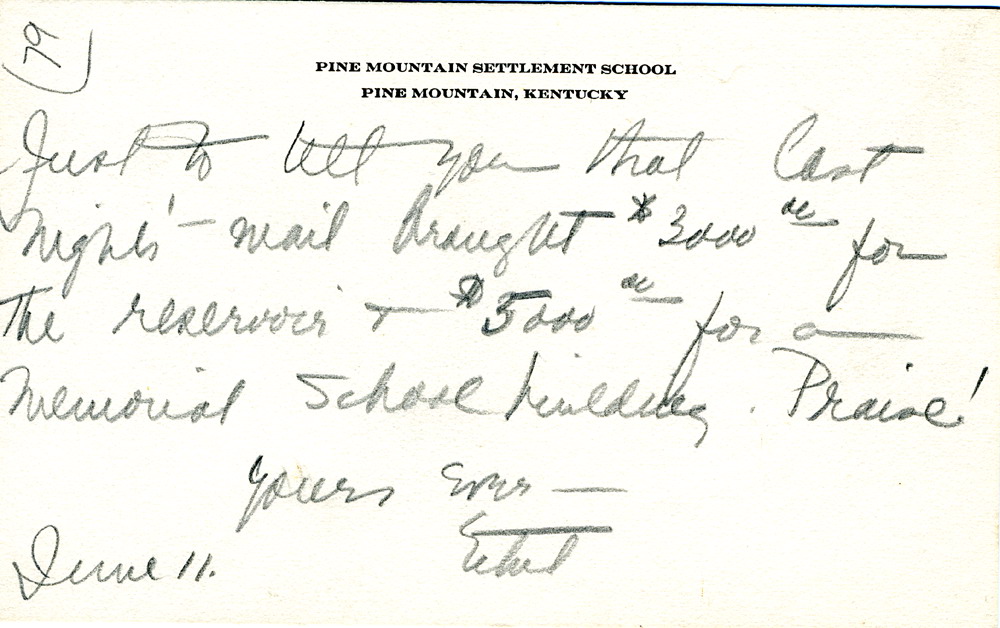 79
PINE MOUNTAIN SETTLEMENT SCHOOL
PINE MOUNTAIN, KENTUCKY
Just to tell you that last
night's mail brought $3000 00 for
the reservoir + $5000 00 for a
memorial school building. Praise!
Yours ever —
Ethel
June 11.